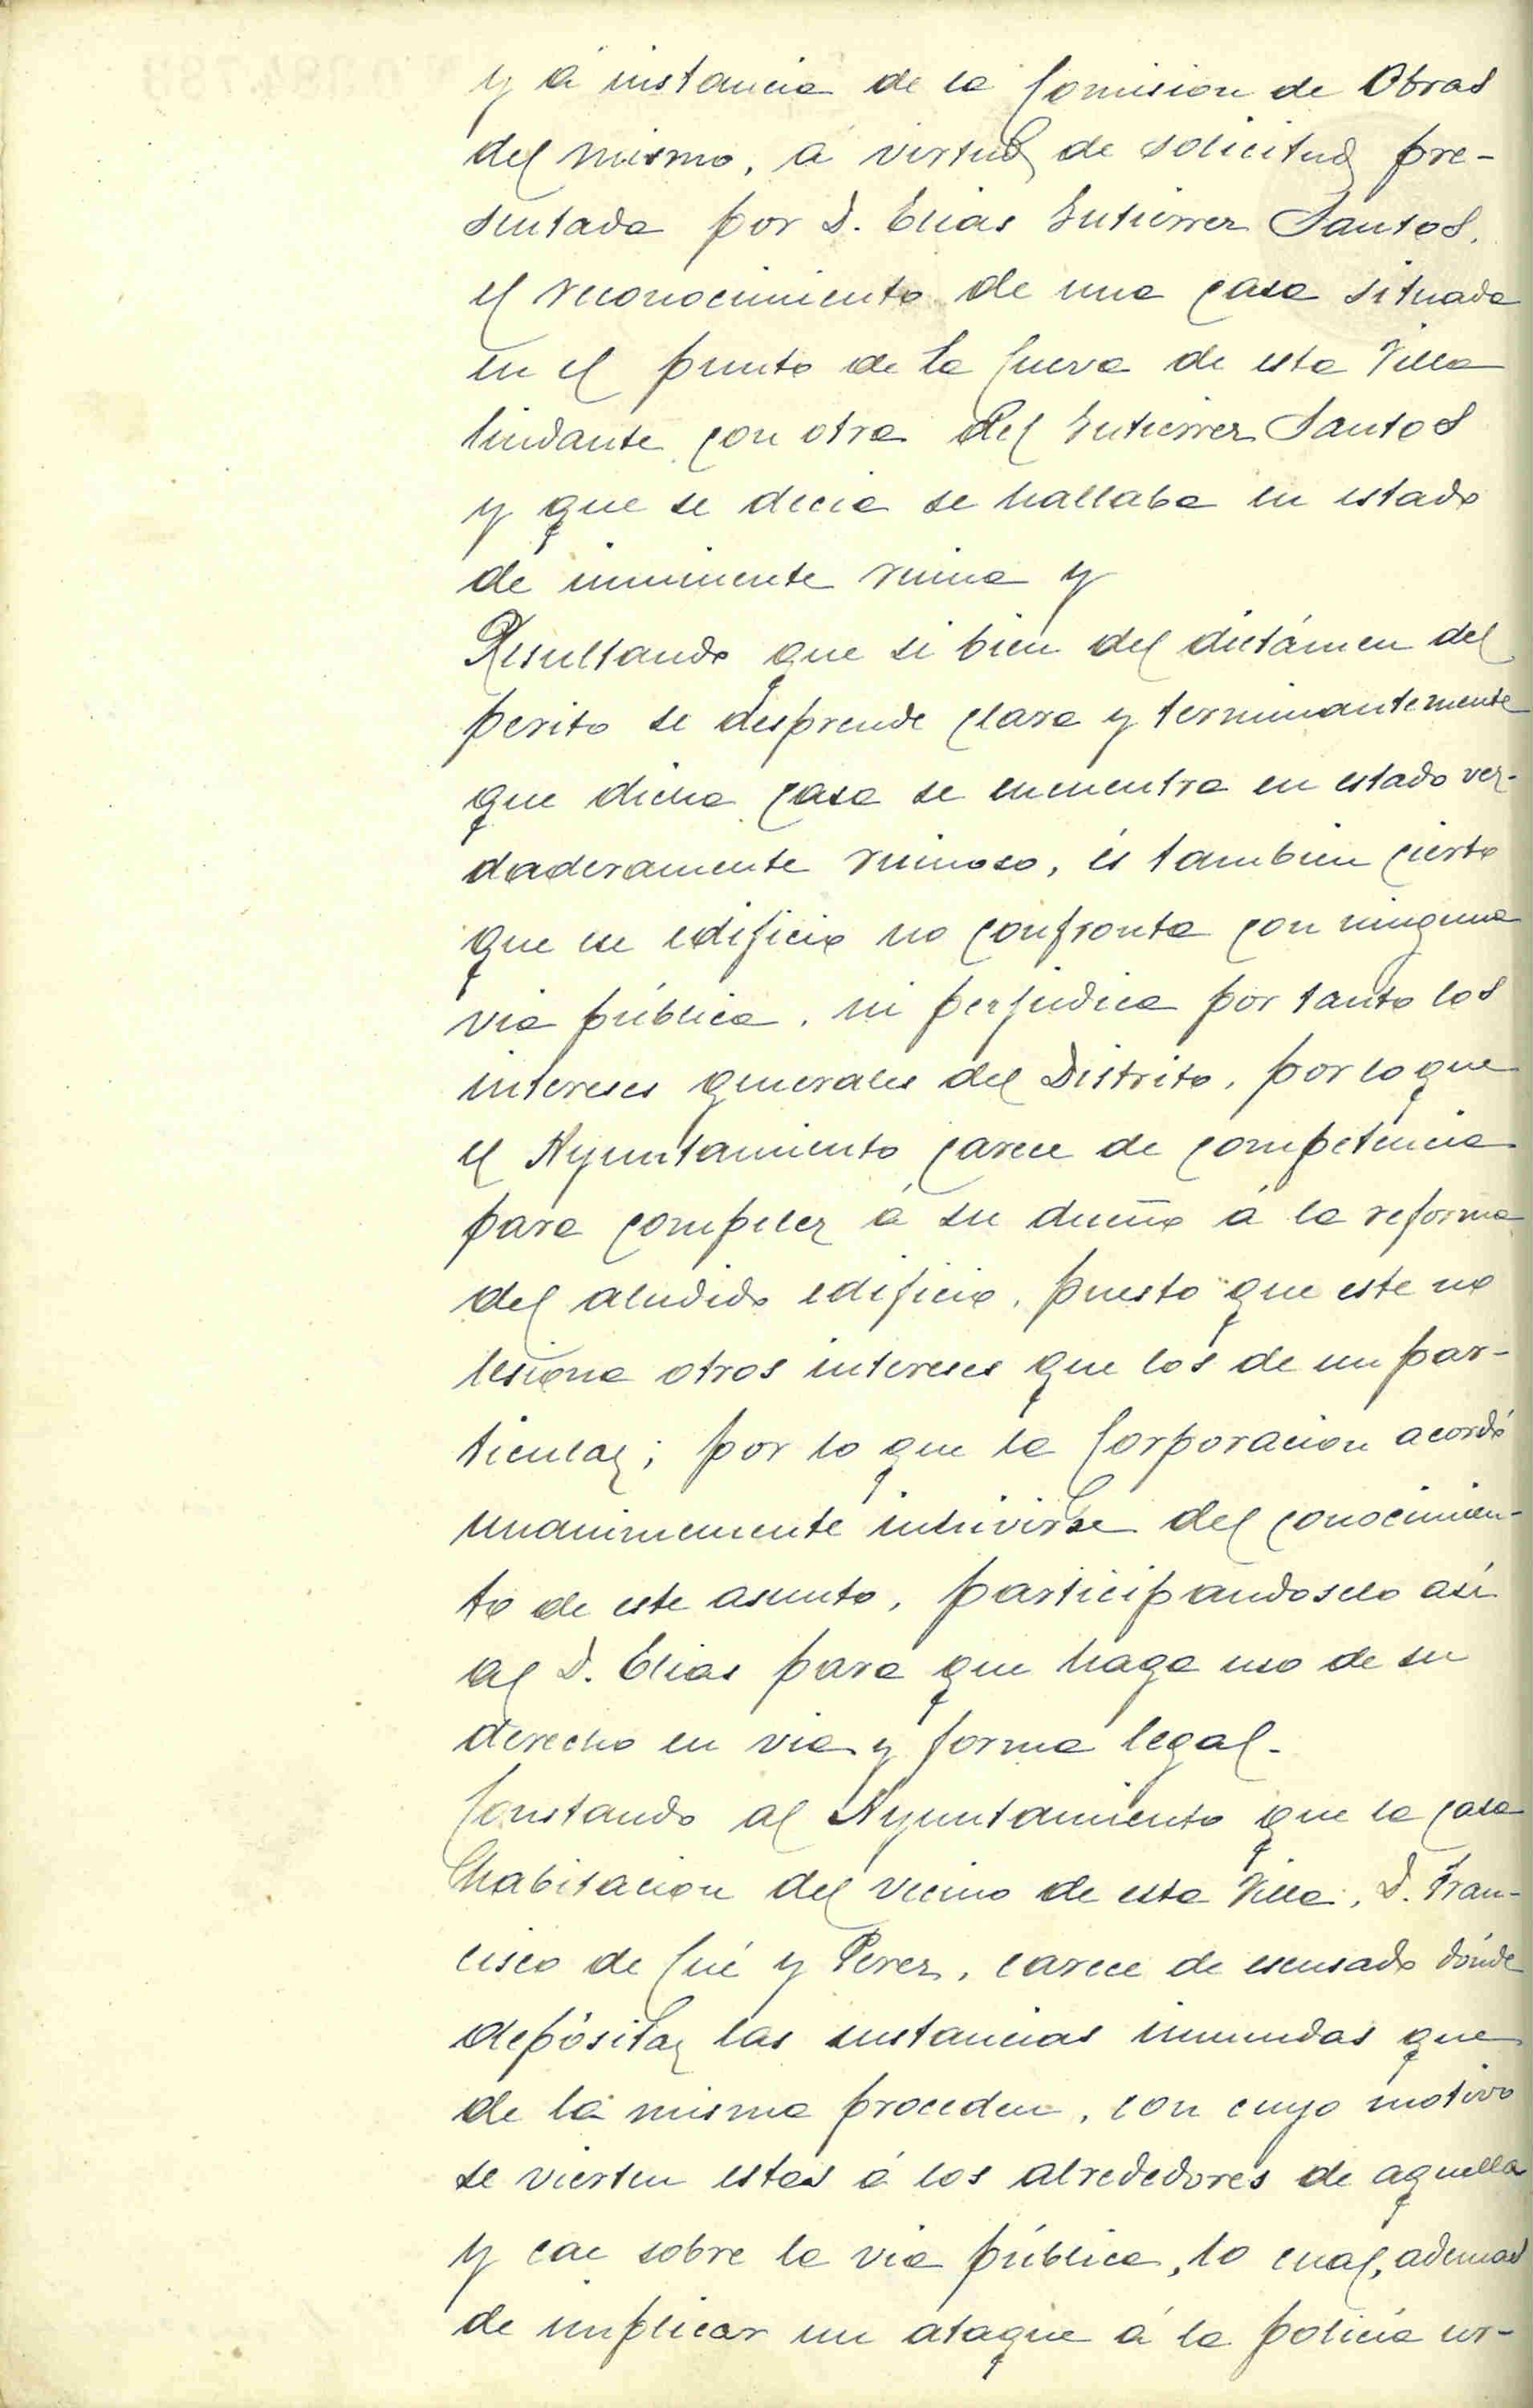 y á instancia de la Comision de Obras
del mismo, á virtud de solicitud pre-
sentada por D. Elias Gutierrez Santos,
el reconocimiento de una casa situada
en el punto de la Cueva de esta Villa
lindante con otra del Gutierrez Santos
y que se decia se hallaba en estado
de inminente ruina y
Resultando que si bien del dictámen del
perito se desprende clara y terminantemente
que dicha casa se encuentra en estado ver-
daderamente ruinoso, és tambien cierto
que ese edificio no confronta con ninguna
via pública, ni perjudica por tanto los
intereses generales del Distrito, por lo que
el Ayuntamiento carece de competencia
para compeler á su dueño á la reforma
del aludido edificio, puesto que este no
lesiona otros intereses que los de un par-
ticular; por lo que la Corporacion acordó
unanimemente inhivirse del conocimien-
to de este asunto, participandoselo así
al D. Elias para que haga uso de su
derecho en via y forma legal-
Constando al Ayuntamiento que la casa
habitacion del vecino de esta Villa, D. Fran-
cisco de Cué y Perez, carece de escusado dónde
depósitar las sustancias inmundas que
de la misma proceden, con cuyo motivo
se vierten estas á los alrededores de aquella
y cae sobre la via pública, lo cual, ademas
de implicar un ataque á la policía ur-